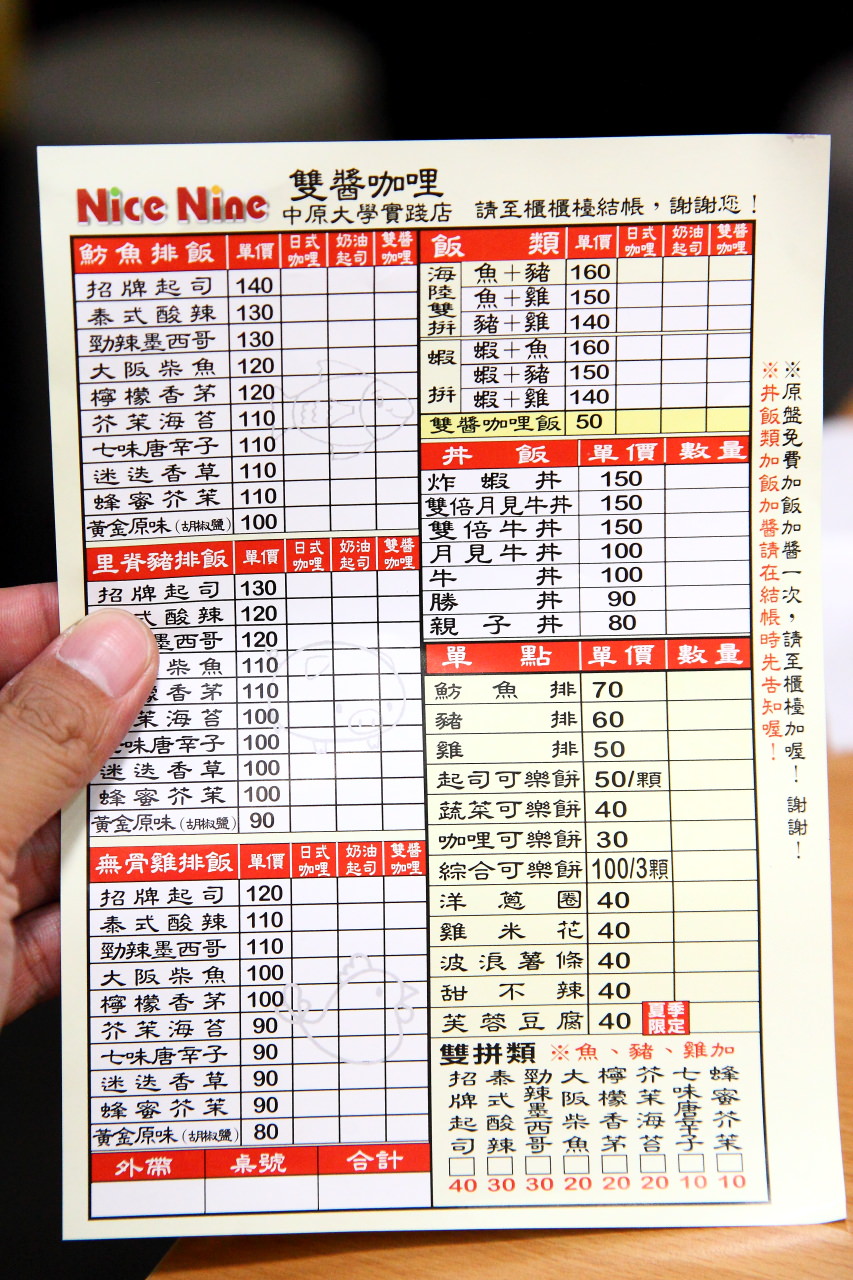 Nice Nine 雙醬咖哩
中原大學實踐店 請至櫃櫃檯結帳，謝謝您！
魴魚排飯 單價 日式咖哩 奶油起司 雙醬咖哩
招牌起司 140
泰式酸辣 130
勁辣墨西哥 130
大阪柴魚 120
檸檬香茅 120
芥茉海苔 110
七味唐辛子 110
迷迭香草 110
蜂蜜芥茉 110
黃金原味(胡椒鹽) 100
里脊豬排飯 單價 日式咖哩 奶油起司 雙醬咖哩
招牌起司 130
式酸辣 120
墨西哥 120
柴魚 110
香茅 110
茉海苔 100
味唐辛子 100
迷迭香草 100
蜂蜜芥茉 100
黃金原味(胡椒鹽) 90
無骨雞排飯 單價 日式咖哩 奶油起司 雙醬咖哩
招牌起司 120
泰式酸辣 110
勁辣墨西哥 110
大阪柴魚 100
檸檬香茅 100
芥茉海苔 90
七味唐辛子 90
迷迭香草 90
蜂蜜芥茉 90
黃金原味(胡椒鹽) 80
外帶 桌號 合計
飯類 單價 日式咖哩 奶油起司 雙醬咖哩
海陸雙拼
魚＋豬 160
魚＋雞 150
豬＋雞 140
蝦拼
蝦＋魚 160
蝦＋豬 150
蝦＋雞 140
雙醬咖哩飯 50
丼飯 單價 數量
炸蝦丼 150
雙倍月見牛丼 150
雙倍牛丼 150
月見牛丼 100
牛丼 100
勝丼 90
親子丼 80
單點 單價 數量
魴魚排 70
豬排 60
雞排 50
起司可樂餅 50/顆
蔬菜可樂餅 40
咖哩可樂餅 30
綜合可樂餅 100/3顆
洋蔥圈 40
雞米花 40
波浪薯條 40
甜不辣 40
芙蓉豆腐 40 夏季限定
雙拼類 ※魚、豬、雞加
招牌起司 40
泰式酸辣 30
勁辣墨西哥 30
大阪柴魚 20
檸檬香茅 20
芥茉海苔 20
七味唐辛子 10
蜂蜜芥茉 10
※原盤免費加飯加醬一次，請至櫃檯加喔！謝謝！
※丼飯類加飯加醬請在結帳時先告知喔！